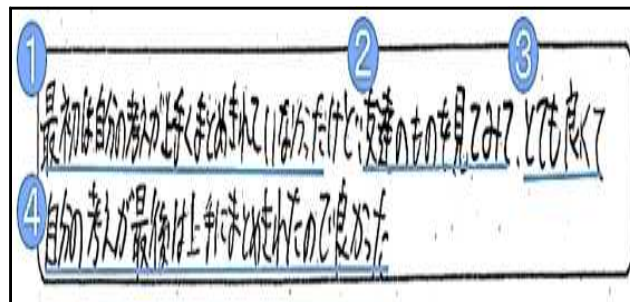 ① ② ③
最初は自分の考えが上手くまとめきれていなかったけど、友達のものを見てみて、とても良くて
④
自分の考えが最後は上手にまとめきれたので良かった